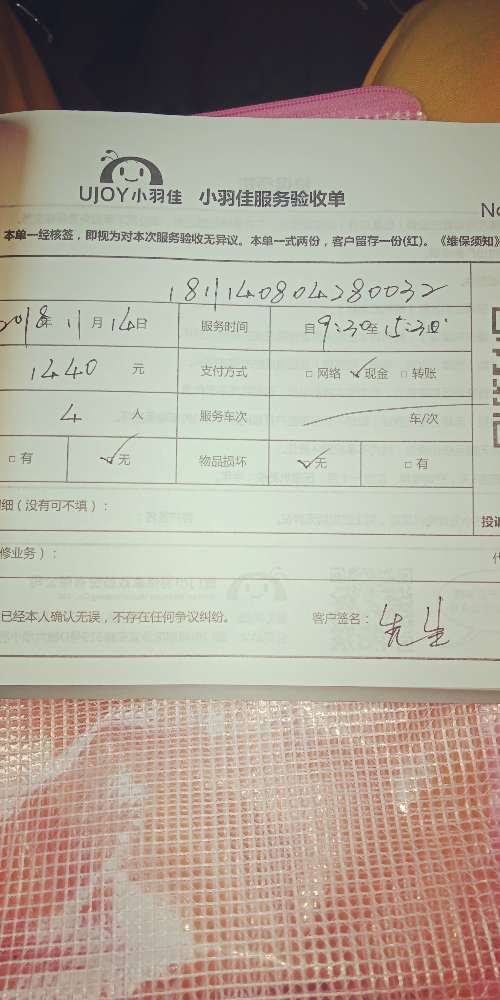 UJOY小羽佳 小羽佳服务验收单
No
本单一经核签，即视为对本次服务验收无异议。本单一式两份，客户留存一份(红)。《维保须知》
1811140804280032
2018年11月14日 服务时间 自9:30至15:30止
1440 元 支付方式 □ 网络 ✓现金 □ 转账
4 人 服务车次 车/次
□ 有 ✓无 物品损坏 ✓无 □ 有
细（没有可不填）：
投诉
修业务）：
已经本人确认无误，不存在任何争议纠纷。 客户签名：先生